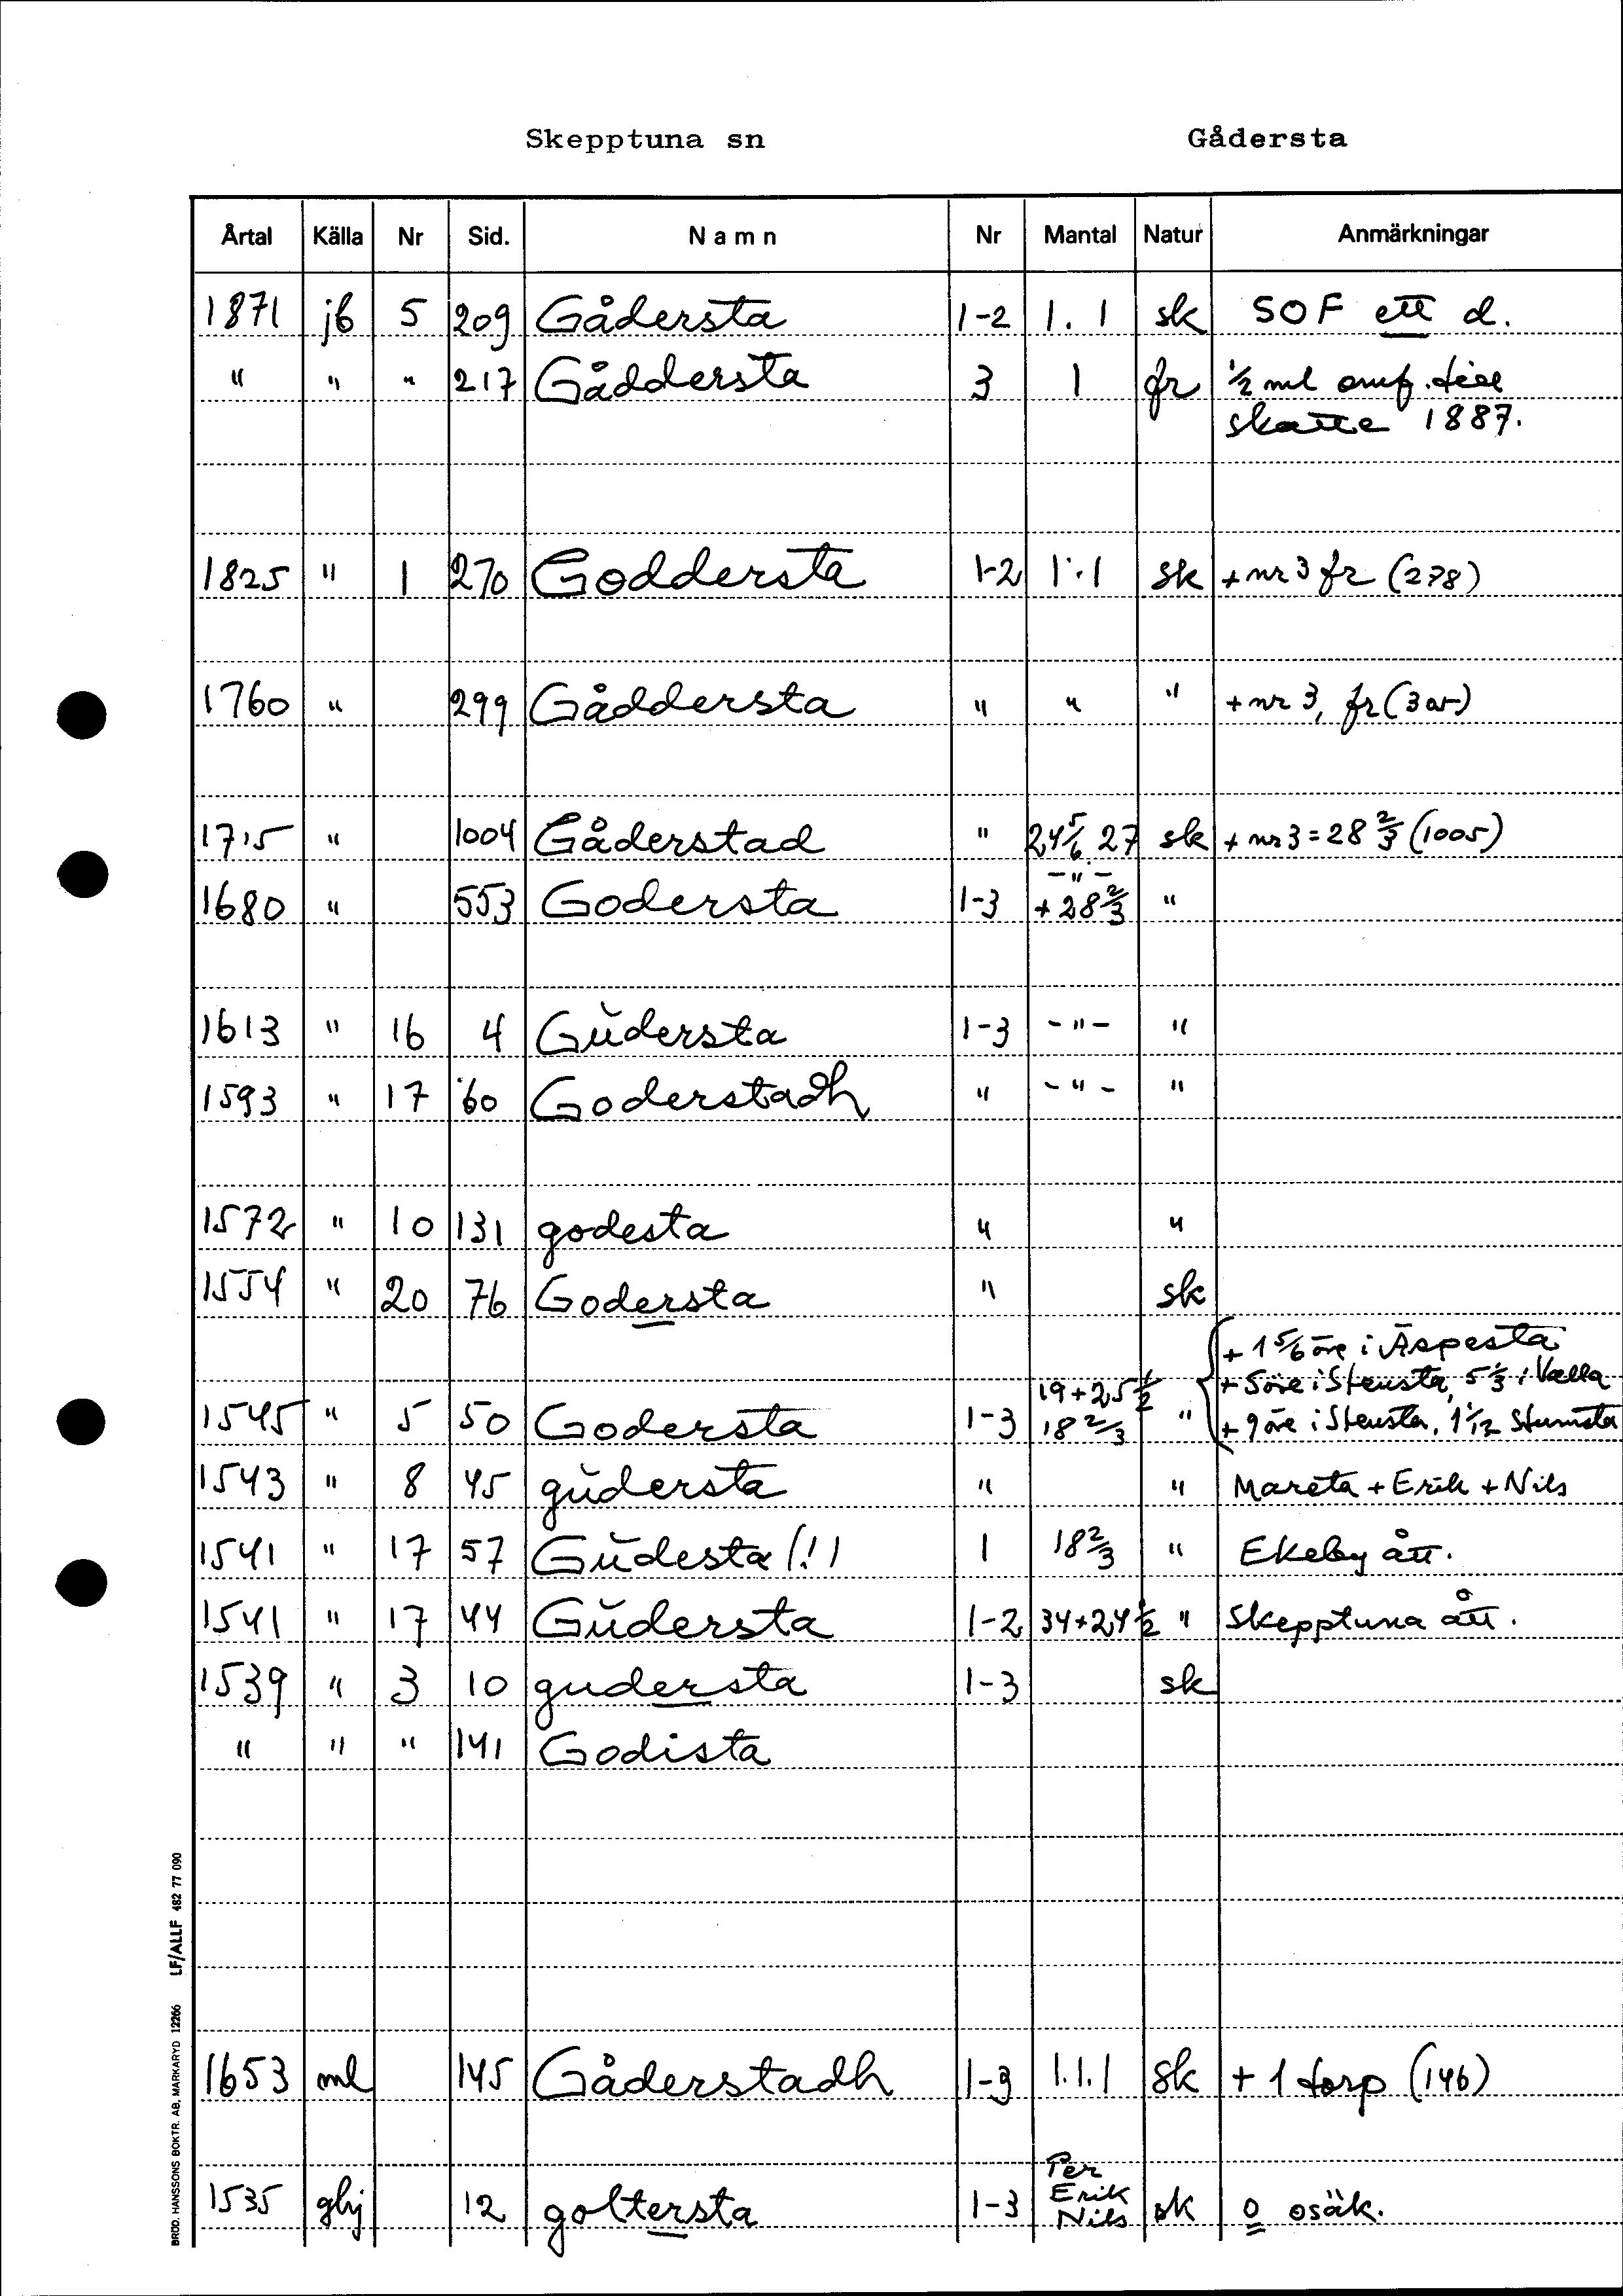 Skepptuna sn Gådersta
Årtal Källa Nr Sid. Namn Nr Mantal Natur Anmärkningar
1871 jb 5 209 Gådersta 1-2 1. 1 sk SOF ett d.
" " " 217 Gåddersta 3 1 fr ½ ml omf. till
skatte 1887.
1825 " 1 270 Goddersta 1-2 1.1 sk + nr 3 fr (278)
1760 " 299 Gåddersta " " " + nr 3, fr (305)
1715 " 1004 Gåderstad " 24 5/6 27 sk + nr 3 = 28 2/3 (1005)
- " -
1680 " 553 Godersta 1-3 + 28 2/3 "
1613 " 16 4 Gŭdersta 1-3 - " - "
1593 " 17 60 Goderstadh " - " - "
1572 " 10 131 godesta " "
1554 " 20 76 Godersta " sk
+ 1 5/6 öre i Äspesta
19+25 ½ + 5 öre i Stensta, 5 1/3 i Valla
1545 " 5 50 Godersta 1-3 18 2/3 " + 9 öre i Stensta, 1 1/12 Stumsta
1543 " 8 45 gŭdersta " " Mareta + Erik + Nils
1541 " 17 57 Gŭdesta (!) 1 18 2/3 " Ekebyått.
1541 " 17 44 Gŭdersta 1-2 34+24 ½ " Skepptuna ått.
1539 " 3 10 gudersta 1-3 sk
" " " 141 Godista
1653 ml 145 Gåderstadh 1-3 1.1.1 sk + 1 torp (146)
Per
Erik
1535 ghj 12 goltersta 1-3 Nils sk o osäk.
BRÖD. HANSSONS BOKTR. AB, MARKARYD 12266 LF/ALLF 482 77 090